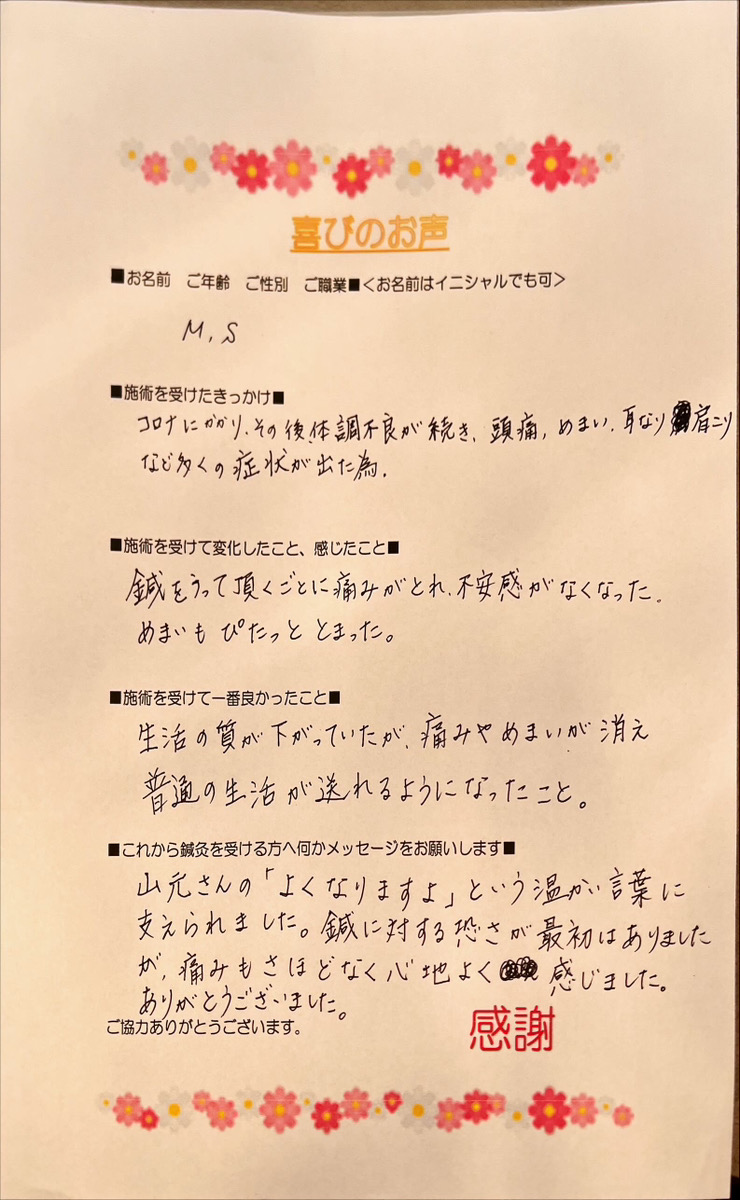 喜びのお声
■お名前　ご年齢　ご性別　ご職業■＜お名前はイニシャルでも可＞
M.S
■施術を受けたきっかけ■
コロナにかかり、その後、体調不良が続き、頭痛、めまい、耳なり 肩こり
など多くの症状が出た為、
■施術を受けて変化したこと、感じたこと■
鍼をうって頂くごとに痛みがとれ、不安感がなくなった。
めまいも ぴたっと とまった。
■施術を受けて一番良かったこと■
生活の質が下がっていたが、痛みやめまいが消え
普通の生活が送れるようになったこと。
■これから鍼灸を受ける方へ何かメッセージをお願いします■
山元さんの「よくなりますよ」という温かい言葉に
支えられました。鍼に対する恐さが最初はありました
が、痛みもさほどなく心地よく 感じました。
ありがとうございました。
ご協力ありがとうございます。
感謝